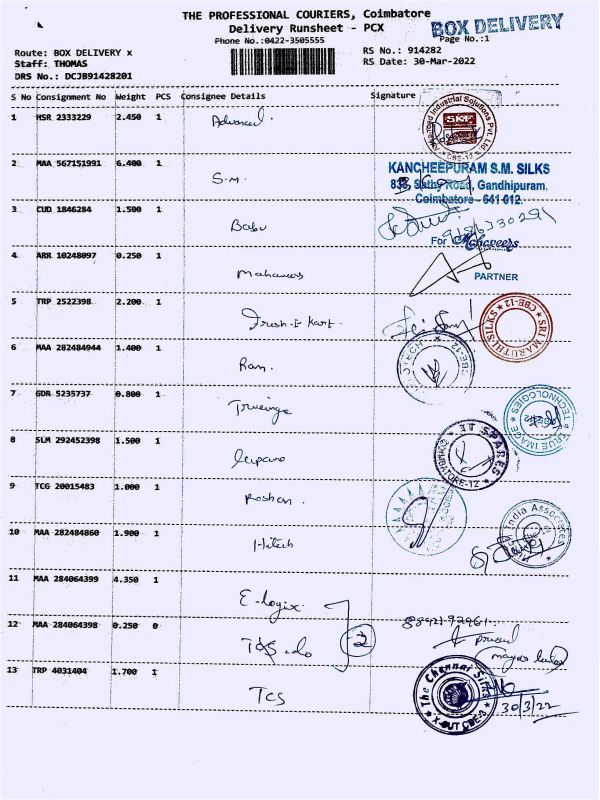 THE PROFESSIONAL COURIERS, Coimbatore
Delivery Runsheet - PCX
BOX DELIVERY
Phone No.:0422-3505555
Page No.:1
Route: BOX DELIVERY x
RS No.: 914282
Staff: THOMAS
RS Date: 30-Mar-2022
DRS No.: DCJB91428201
S No Consignment No Weight PCS Consignee Details Signature
1 HSR 2333229 2.450 1 Advanced.
Advanced Industrial Solutions Pvt. Ltd. SKF CBE-12
2 MAA 567151991 6.400 1 S.M.
KANCHEEPURAM S.M. SILKS
838, Sathy Road, Gandhipuram,
Coimbatore - 641 012.
3 CUD 1846284 1.500 1 Babu
For Mahaveers
4 ARR 10248097 0.250 1
PARTNER
5 TRP 2522398 2.200 1
SRI MARUTHI SILKS CBE-12
6 MAA 282484944 1.400 1 Ram.
CBE-12
7 GDR 5235737 0.800 1
TRUE IMAGE TECHNOLOGIES
8 SLM 292452398 1.500 1
IT SPARES COIMBATORE-12
9 TCG 20015483 1.000 1 Roshan.
10 MAA 282484860 1.900 1 Hitech
India Associates
11 MAA 284064399 4.350 1 E-logix
2
12 MAA 284064398 0.250 0
13 TRP 4031404 1.700 1 TCS
The Chennai Silks
X-CUT CBE-3
30/3/22